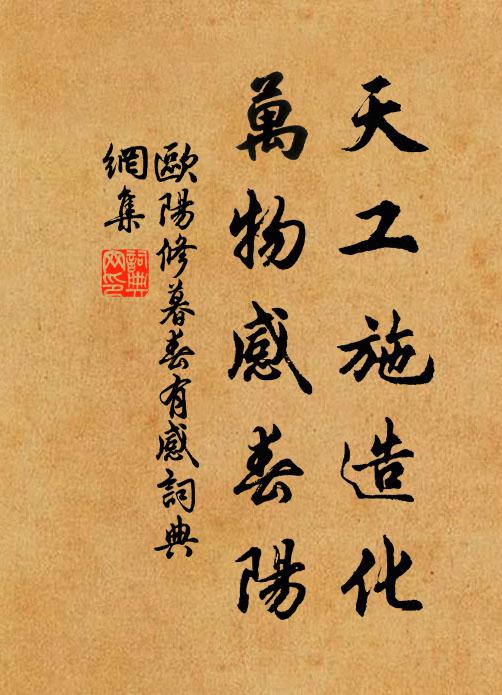 天工施造化
萬物感春陽
歐陽修暮春有感詞典
網集
詞典
网印